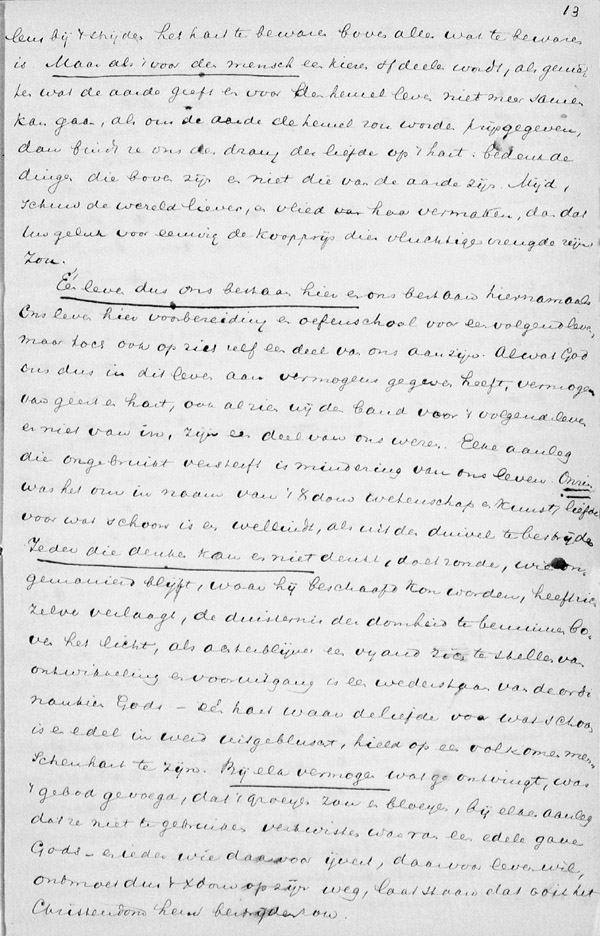 13
lens bij 't strijden het hart te bewaren boven alles wat te bewaren
is Maar als 't voor den mensch een kiezen of deelen wordt, als genie-
ten wat de aarde geeft en voor den hemel leven niet meer samen
kan gaan, als om de aarde de hemel zou worden prijsgegeven,
dan bindt ze ons den drang der liefde op 't hart: bedenk de
dingen die boven zijn en niet die van de aarde zijn. Mijd,
schuw de wereld liever, en vlied haar vermaken, dan dat
Uw geluk voor eeuwig de koopprijs dier vluchtige vreugde zijn
zou.
Eén leven dus ons bestaan hier en ons bestaan hiernamaals
Ons leven hier voorbereiding en oefenschool voor een volgend leven,
maar toch ook op zich zelf een deel van ons aanzijn. Al wat God
ons dus in dit leven aan vermogens gegeven heeft, vermogen
van geest en hart, ook al zien wij den band voor 't volgend leven
er niet van in, zijn een deel van ons wezen. Elke aanleg
die ongebruikt versterft is mindering van ons leven. Onzin
was het om in naam van 't Xdom wetenschap en kunst, liefde
voor wat schoon is en welluidt, als uit den duivel te bestrijden
Ieder die denken kan en niet denkt, doet zonde, wie on-
gemanierd blijft, waar hij beschaafd kon worden, heeft zich
zelve verlaagd, de duisternis der domheid te beminnen bo-
ven het licht, als achterblijver een vyand zich te stellen van
ontwikkeling en vooruitgang is een wederstaan van de ordi-
nantiën Gods – een hart waar de liefde voor wat schoon
is en edel in werd uitgebluscht, hield op een volkomen men-
schenhart te zijn. Bij elk vermogen wat ge ontvingt, was
't gebod gevoegd, dat 't groeyen zou en bloeyen, bij elken aanleg
dat ze niet te gebruiken verkwisten was van een edele gave
Gods – en ieder wie daarvoor ijvert, daarvoor leven wil,
ontmoet dus 't Xdom op zijn weg, laat staan dat ooit het
Christendom hem bestrijden zou.